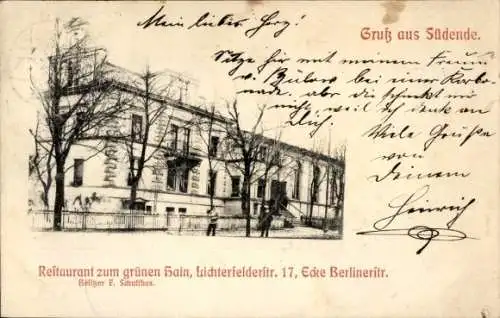 Mein lieber Herz!
Gruß aus Südende.
Sitze hier mit meinem Freund
v. Bülow bei einer Karbo-
nade. aber die schmeckt mir
nicht weil ich denk an
Dich!
Viele Grüße
von
Deinem
Heinrich
Restaurant zum grünen Hain, Lichterfelderstr. 17, Ecke Berlinerstr.
Besitzer F. Schultheis.